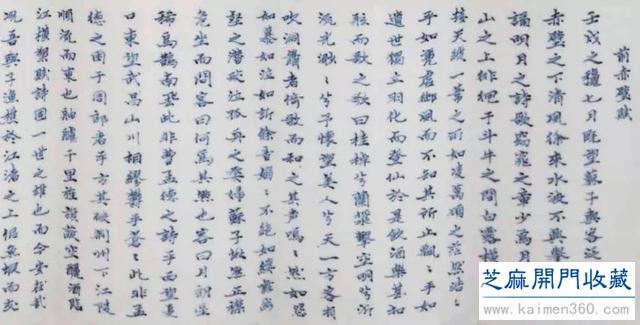 前赤壁賦
壬戌之穐七月既望蘇子與客泛
赤壁之下清風徐來水波不興舉
誦明月之詩歌窈窕之章少焉月
山之上徘徊于斗牛之間白露橫
接天縱一葦之所如凌萬頃之茫然浩〻
乎如憑虛御風而不知其所止飄〻乎如
遺世獨立羽化而登仙於是飲酒樂甚扣
舷而歌之歌曰桂棹兮蘭槳擊空明兮泝
流光渺〻兮予懷望美人兮天一方客有
吹洞簫者倚歌而和之其聲嗚〻然如怨
如慕如泣如訴餘音嫋〻不絕如縷舞幽
壑之潛蛟泣孤舟之嫠婦蘇子愀然正襟
危坐而問客曰何為其然也客曰月明星
稀烏鵲南飛此非曹孟德之詩乎西望夏
口東望武昌山川相繆鬱乎蒼〻此非孟
德之困于周郎者乎方其破荊州下江陵
順流而東也舳艫千里旌旗蔽空釃酒臨
江橫槊賦詩固一世之雄也而今安在哉
況吾與子漁樵於江渚之上侶魚蝦而友
芝麻開門收藏
www.kaimen360.com